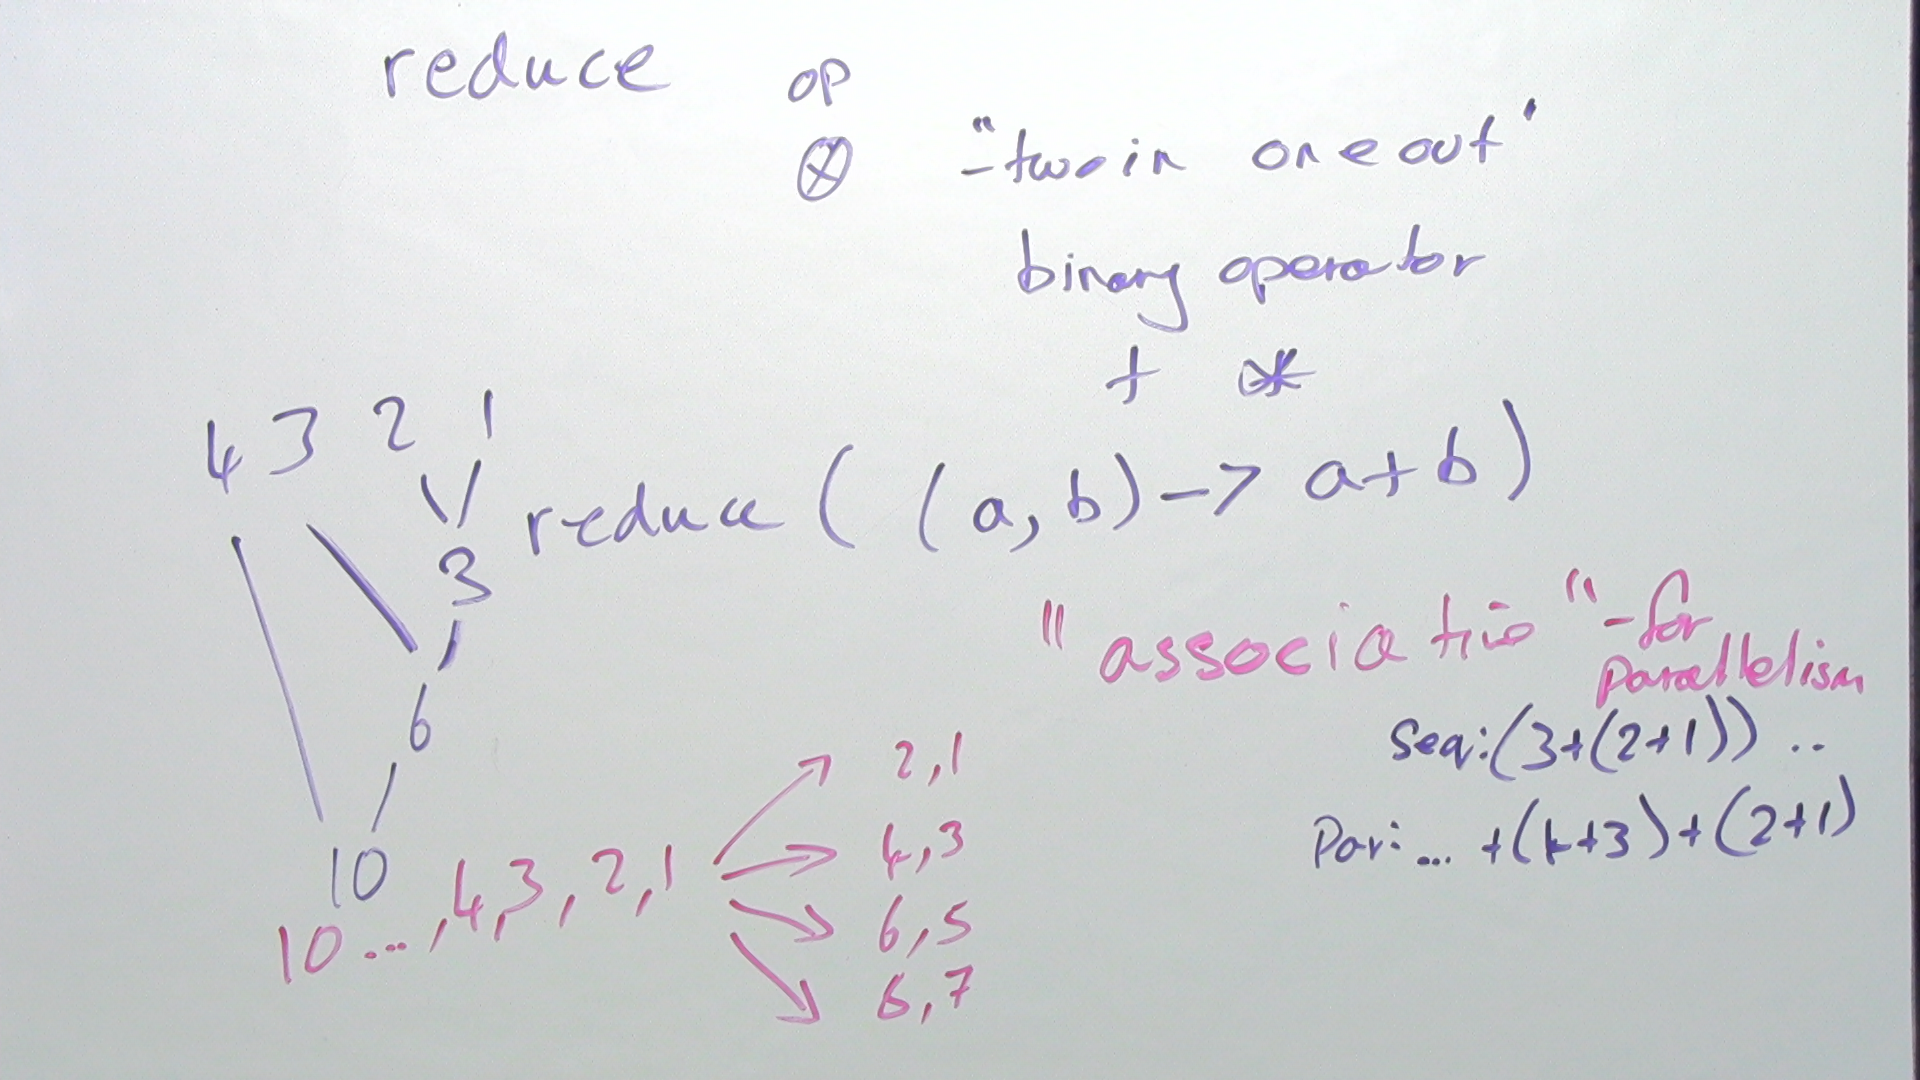 reduce
op
⊗ - "two in one out"
binary operator
+ *
4 3 2 1
3
6
10
reduce ( (a, b) -> a + b )
"associative" - for
parallelism
Seq: (3+(2+1)) ..
Par: ... +(4+3)+(2+1)
10 ... , 4, 3, 2, 1
2, 1
4, 3
6, 5
8, 7